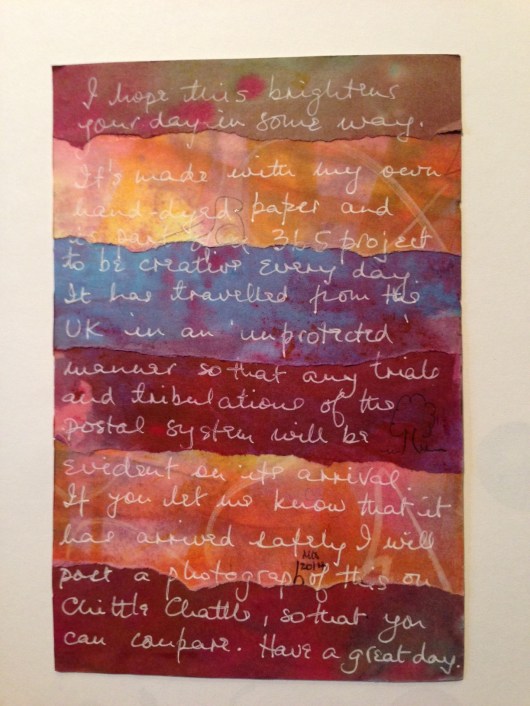 I hope this brightens
your day in some way.
It's made with my own
hand-dyed paper and
is part of a 365 project
to be creative every day.
It has travelled from the
UK in an 'unprotected'
manner so that any trials
and tribulations of the
postal system will be
evident on its arrival.
If you let me know that it
has arrived safely I will
post a photograph of this on
Chittle Chattle, so that you
can compare. Have a great day.